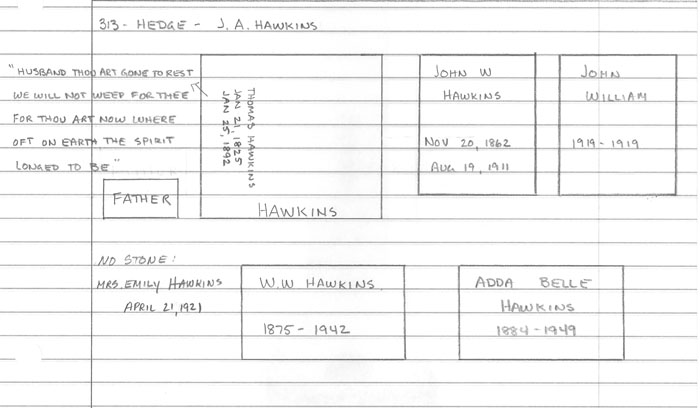 313 - HEDGE - J. A. HAWKINS
"HUSBAND THOU ART GONE TO REST
WE WILL NOT WEEP FOR THEE
FOR THOU ART NOW WHERE
OFT ON EARTH THE SPIRIT
LONGED TO BE"
FATHER
THOMAS HAWKINS
JAN 21, 1825
JAN 25, 1892
HAWKINS
JOHN W
HAWKINS
NOV 20, 1862
AUG 19, 1911
JOHN
WILLIAM
1919 - 1919
NO STONE:
MRS. EMILY HAWKINS
APRIL 21, 1921
W.W HAWKINS
1875 - 1942
ADDA BELLE
HAWKINS
1884 - 1949